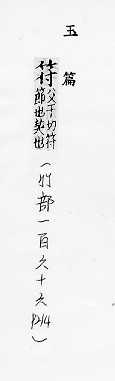 玉篇
符父于切符
節也契也
(竹部一百六十六
1214)